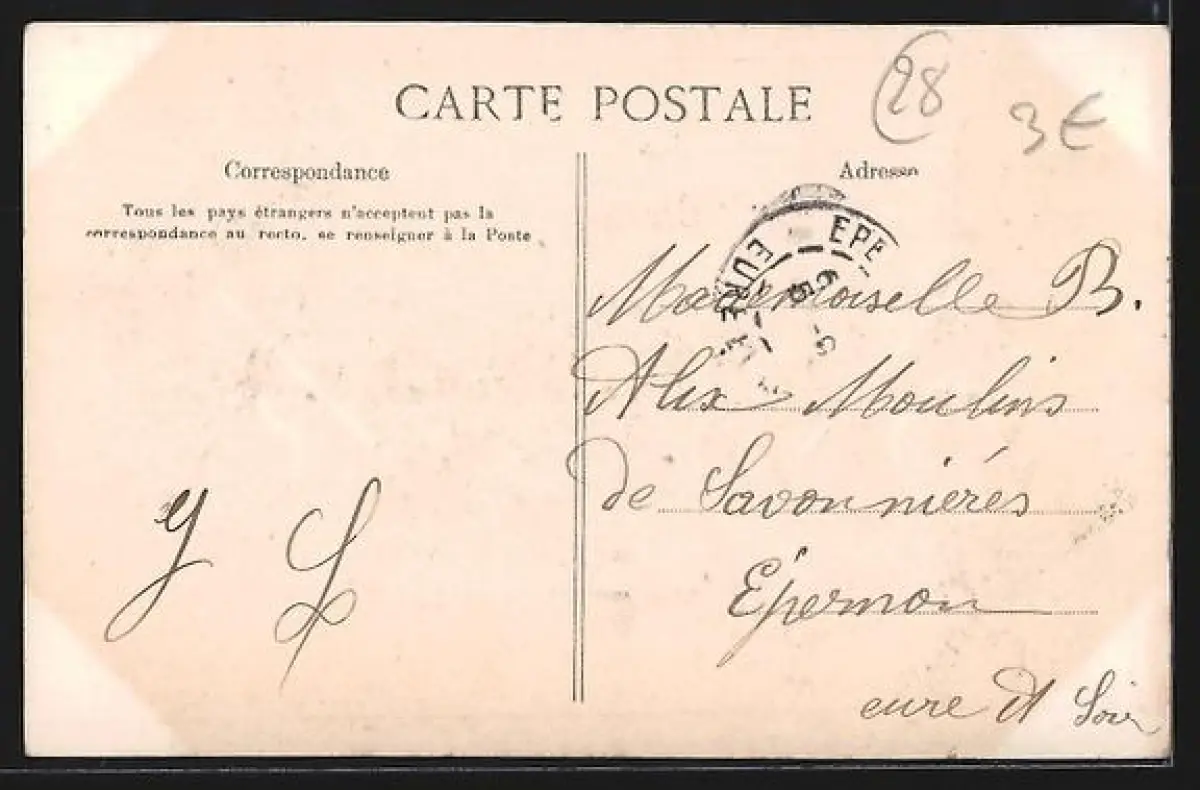 CARTE POSTALE
28
3€
Correspondance
Tous les pays étrangers n'acceptent pas la
correspondance au recto, se renseigner à la Poste
Adresse
EPE
EURE
Mademoiselle B.
Alix Moulins
de Savonniérés
Épernon
eure et Loir